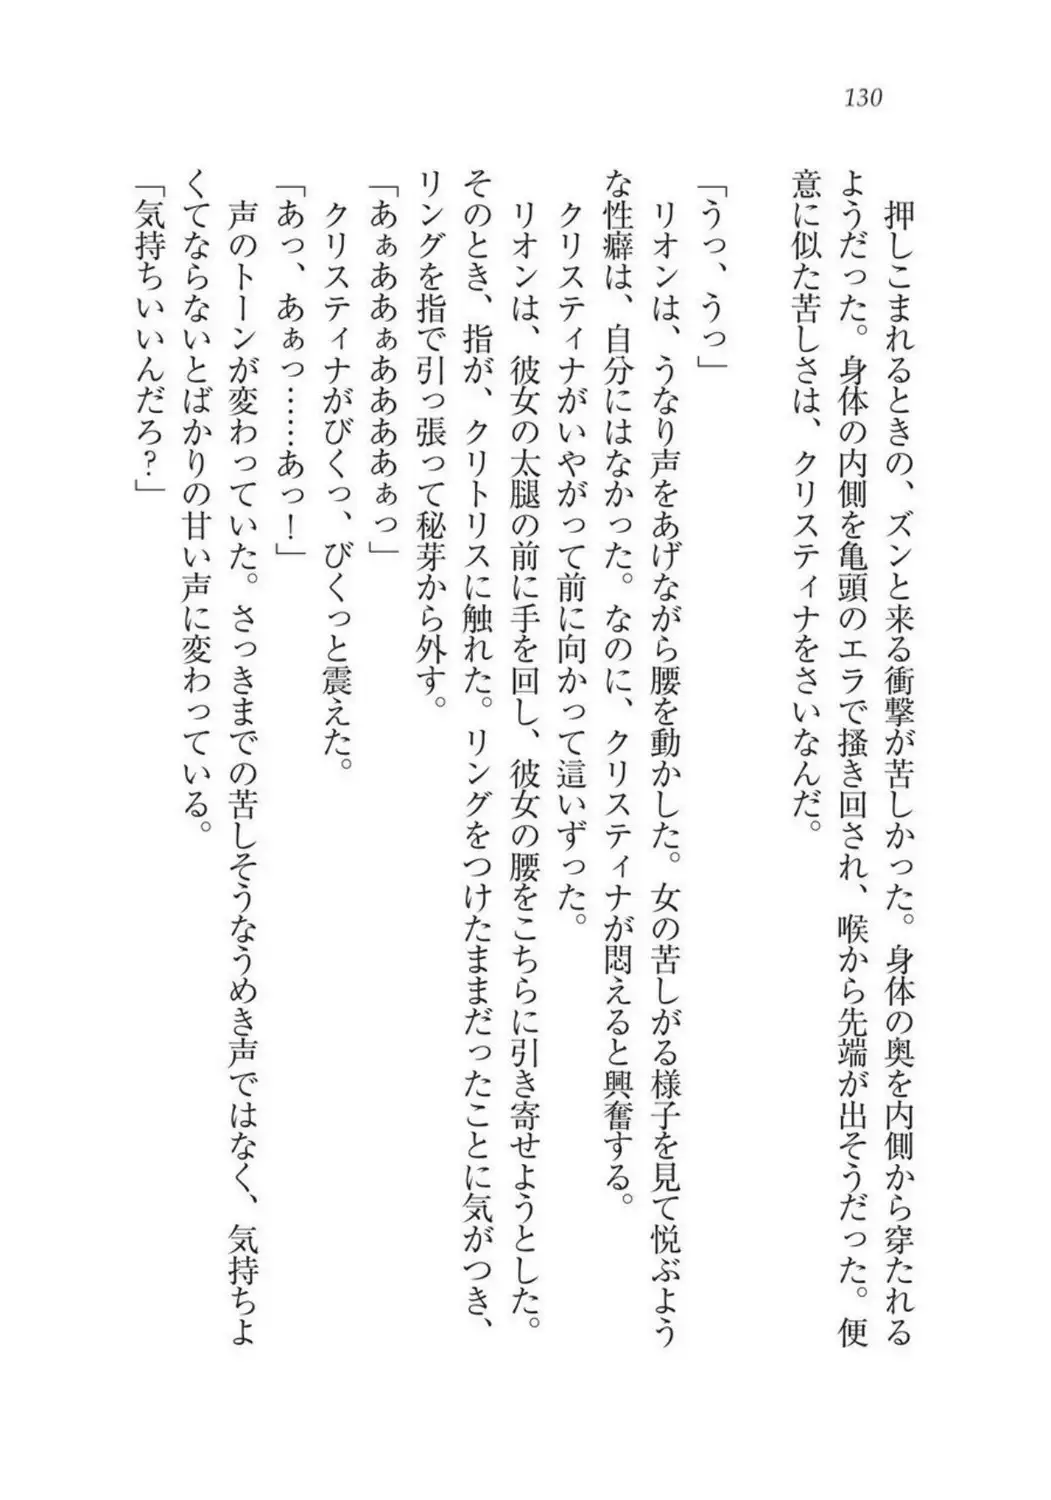 130
押しこまれるときの、ズンと来る衝撃が苦しかった。身体の奥を内側から穿たれる
ようだった。身体の内側を亀頭のエラで掻き回され、喉から先端が出そうだった。便
意に似た苦しさは、クリスティナをさいなんだ。
「うっ、うっ」
リオンは、うなり声をあげながら腰を動かした。女の苦しがる様子を見て悦ぶよう
な性癖は、自分にはなかった。なのに、クリスティナが悶えると興奮する。
クリスティナがいやがって前に向かって這いずった。
リオンは、彼女の太腿の前に手を回し、彼女の腰をこちらに引き寄せようとした。
そのとき、指が、クリトリスに触れた。リングをつけたままだったことに気がつき、
リングを指で引っ張って秘芽から外す。
「あぁああぁあああぁっ」
クリスティナがびくっ、びくっと震えた。
「あっ、あぁっ……あっ！」
声のトーンが変わっていた。さっきまでの苦しそうなうめき声ではなく、気持ちよ
くてならないとばかりの甘い声に変わっている。
「気持ちいいんだろ？」